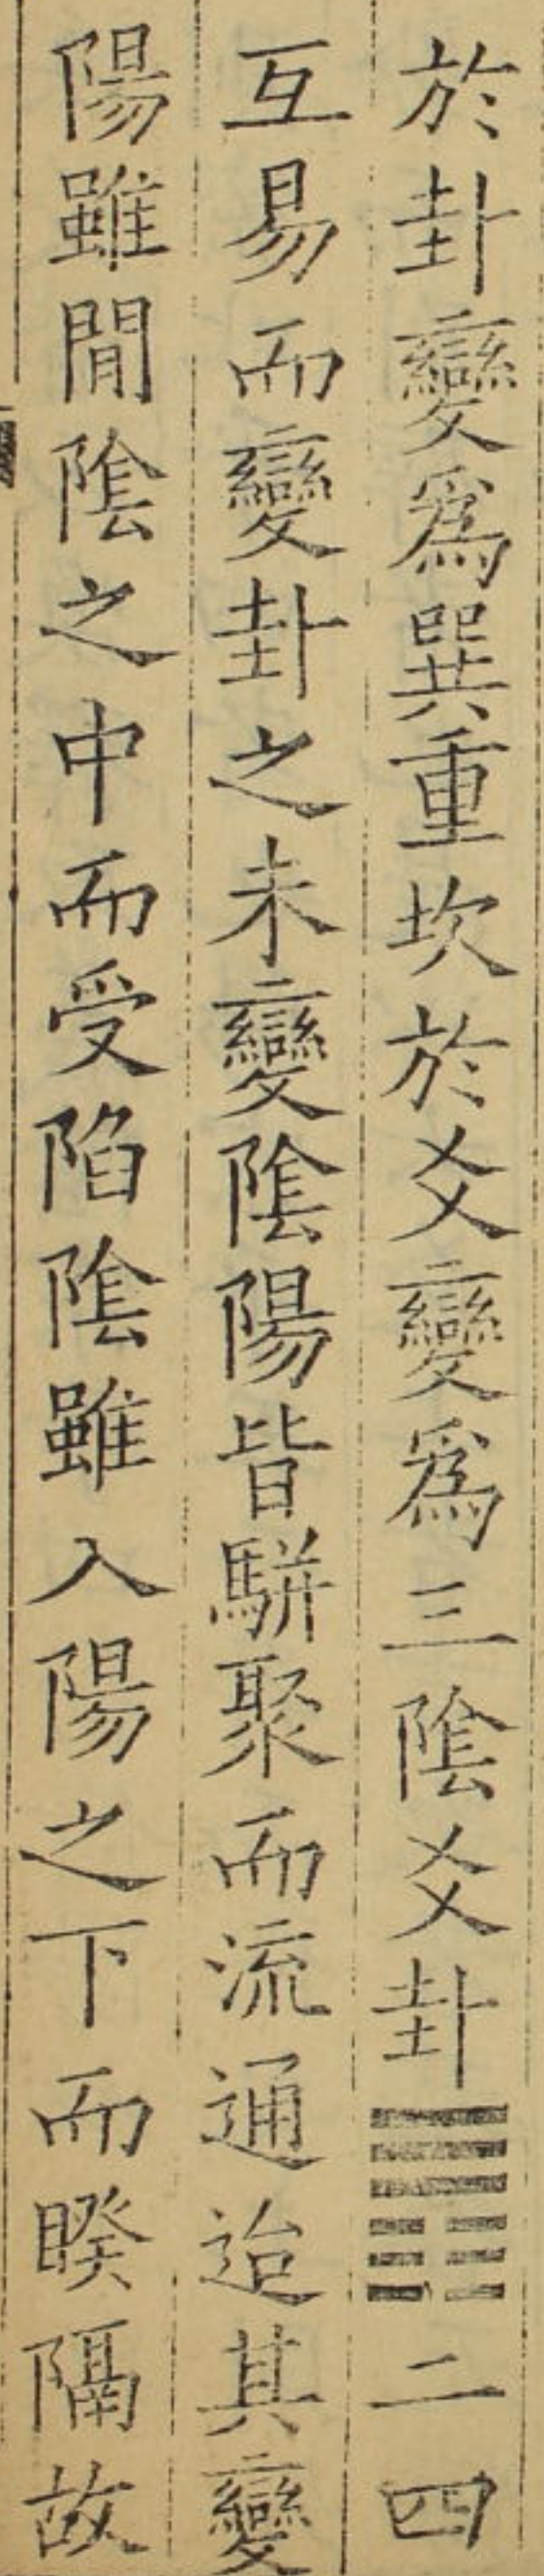 於卦變爲巽重坎於爻變爲三陰爻卦䷋二四
互易而變卦之未變陰陽皆駢聚而流通迨其變
陽雖閒陰之中而受陷陰雖入陽之下而睽隔故